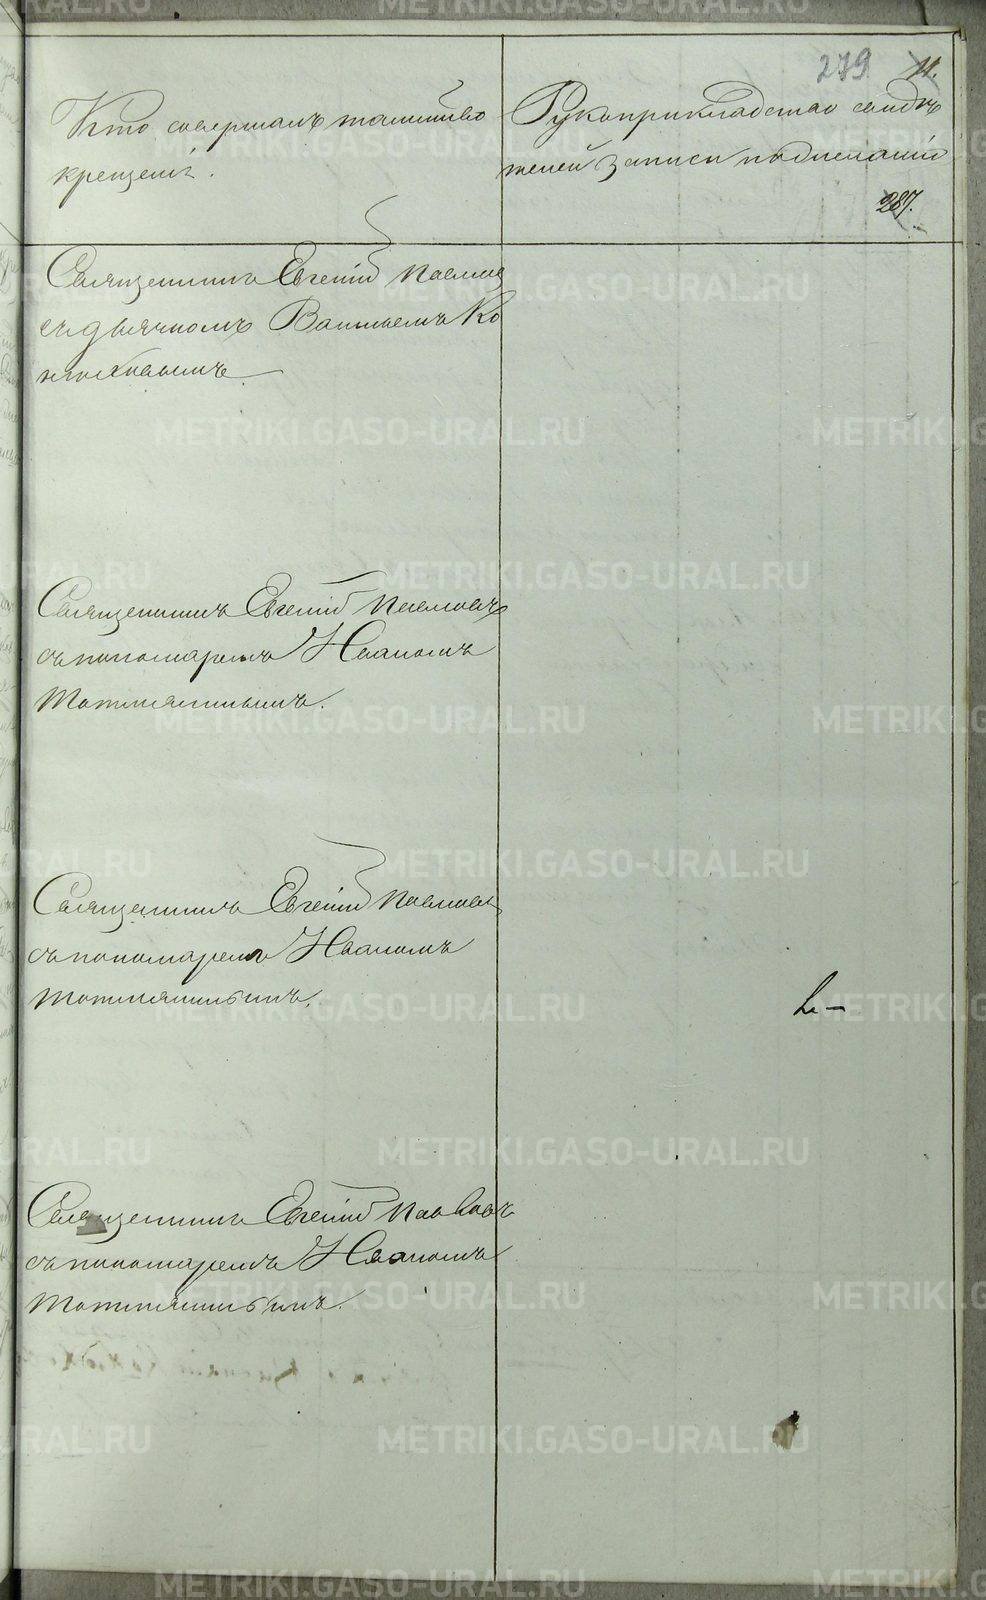 279 11.
Кто совершалъ таинство
крещенія.
Рукоприкладство свидѣ
телей записи по желанію
287.
Священникъ Евгеній Павловъ
съ дьячкомъ Васильемъ Ко
Священникъ Евгеній Павловъ
съ пономаремъ Иваномъ
Топтыгинымъ.
Священникъ Евгеній Павловъ
съ пономаремъ Иваномъ
Священникъ Евгеній Павловъ
съ пономаремъ Иваномъ
METRIKI.GASO-URAL.RU